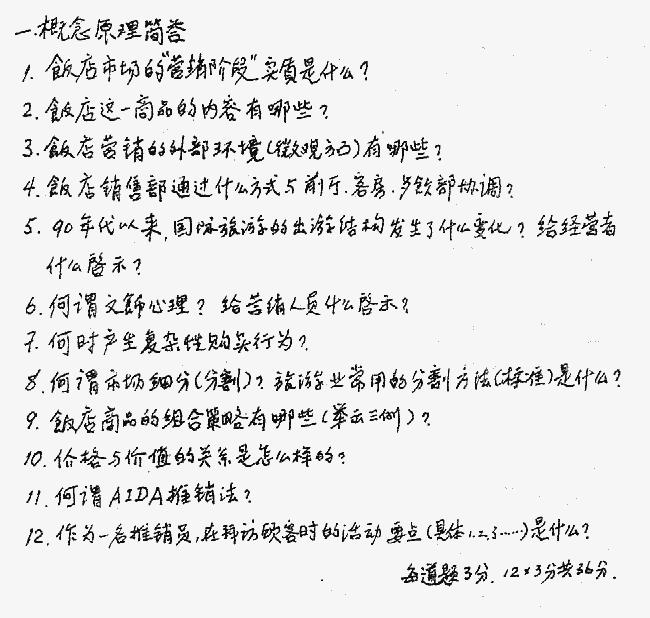 一.概念原理简答
1. 飯店市场的"营销阶段"实质是什么?
2. 飯店这一商品的内容有哪些?
3. 飯店营销的外部环境(微观方面)有哪些?
4. 飯店销售部通过什么方式与前厅.客房.歺飲部协调?
5. 90年代以来,国际旅游的出游结构发生了什么变化? 给经营者
什么啓示?
6. 何谓文飾心理? 给营销人员什么啓示?
7. 何时产生复杂性购买行为?
8. 何谓市场细分(分割)? 旅游业常用的分割方法(标准)是什么?
9. 飯店商品的组合策略有哪些(举出三例)?
10. 价格与价值的关系是怎么样的?
11. 何谓AIDA推销法?
12. 作为一名推销员,在拜访顾客时的活动要点(具体1.2.3……)是什么?
每道题3分. 12×3分共36分.